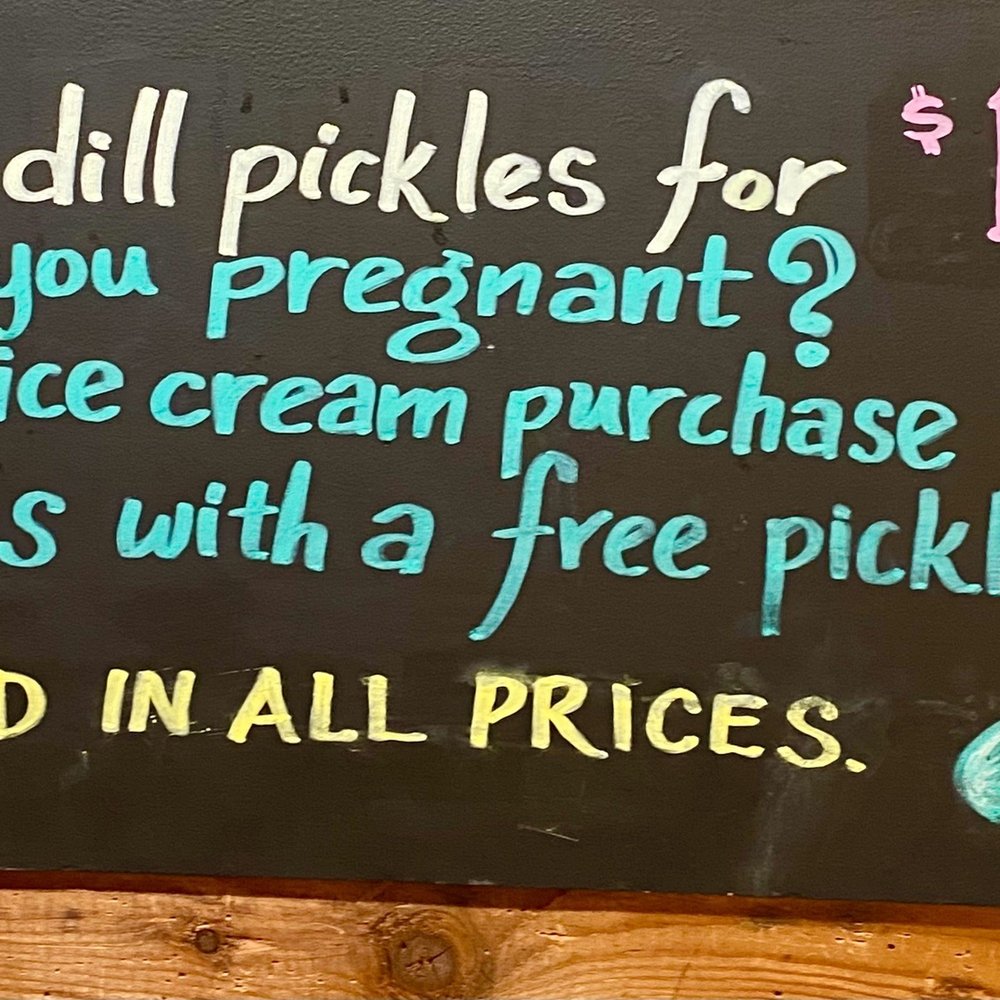 dill pickles for $1
you pregnant?
ice cream purchase
s with a free pickl
D IN ALL PRICES.